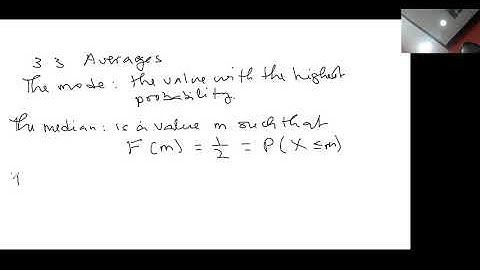 3 3 Averages
The mode: the value with the highest
probability.
The median: is a value m such that
F(m) = 1/2 = P(X ≤ m)